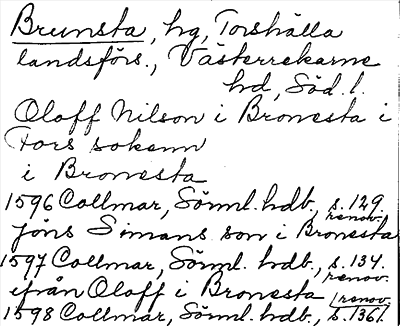 Brunsta, hg, Torshälla
landsförs., Västerrekarne
hd, Söd. l.
Oloff Nilson i Bronesta i
Tors sokenn
i Bronesta
1596 Collmar, Sörml. hdb., s. 129.
renov.
Jöns Simans son i Bronesta
1597 Collmar, Sörml. hdb., s. 134.
renov.
ifrån Oloff i Bronesta
renov.
1598 Collmar, Sörml. hdb., s. 136.